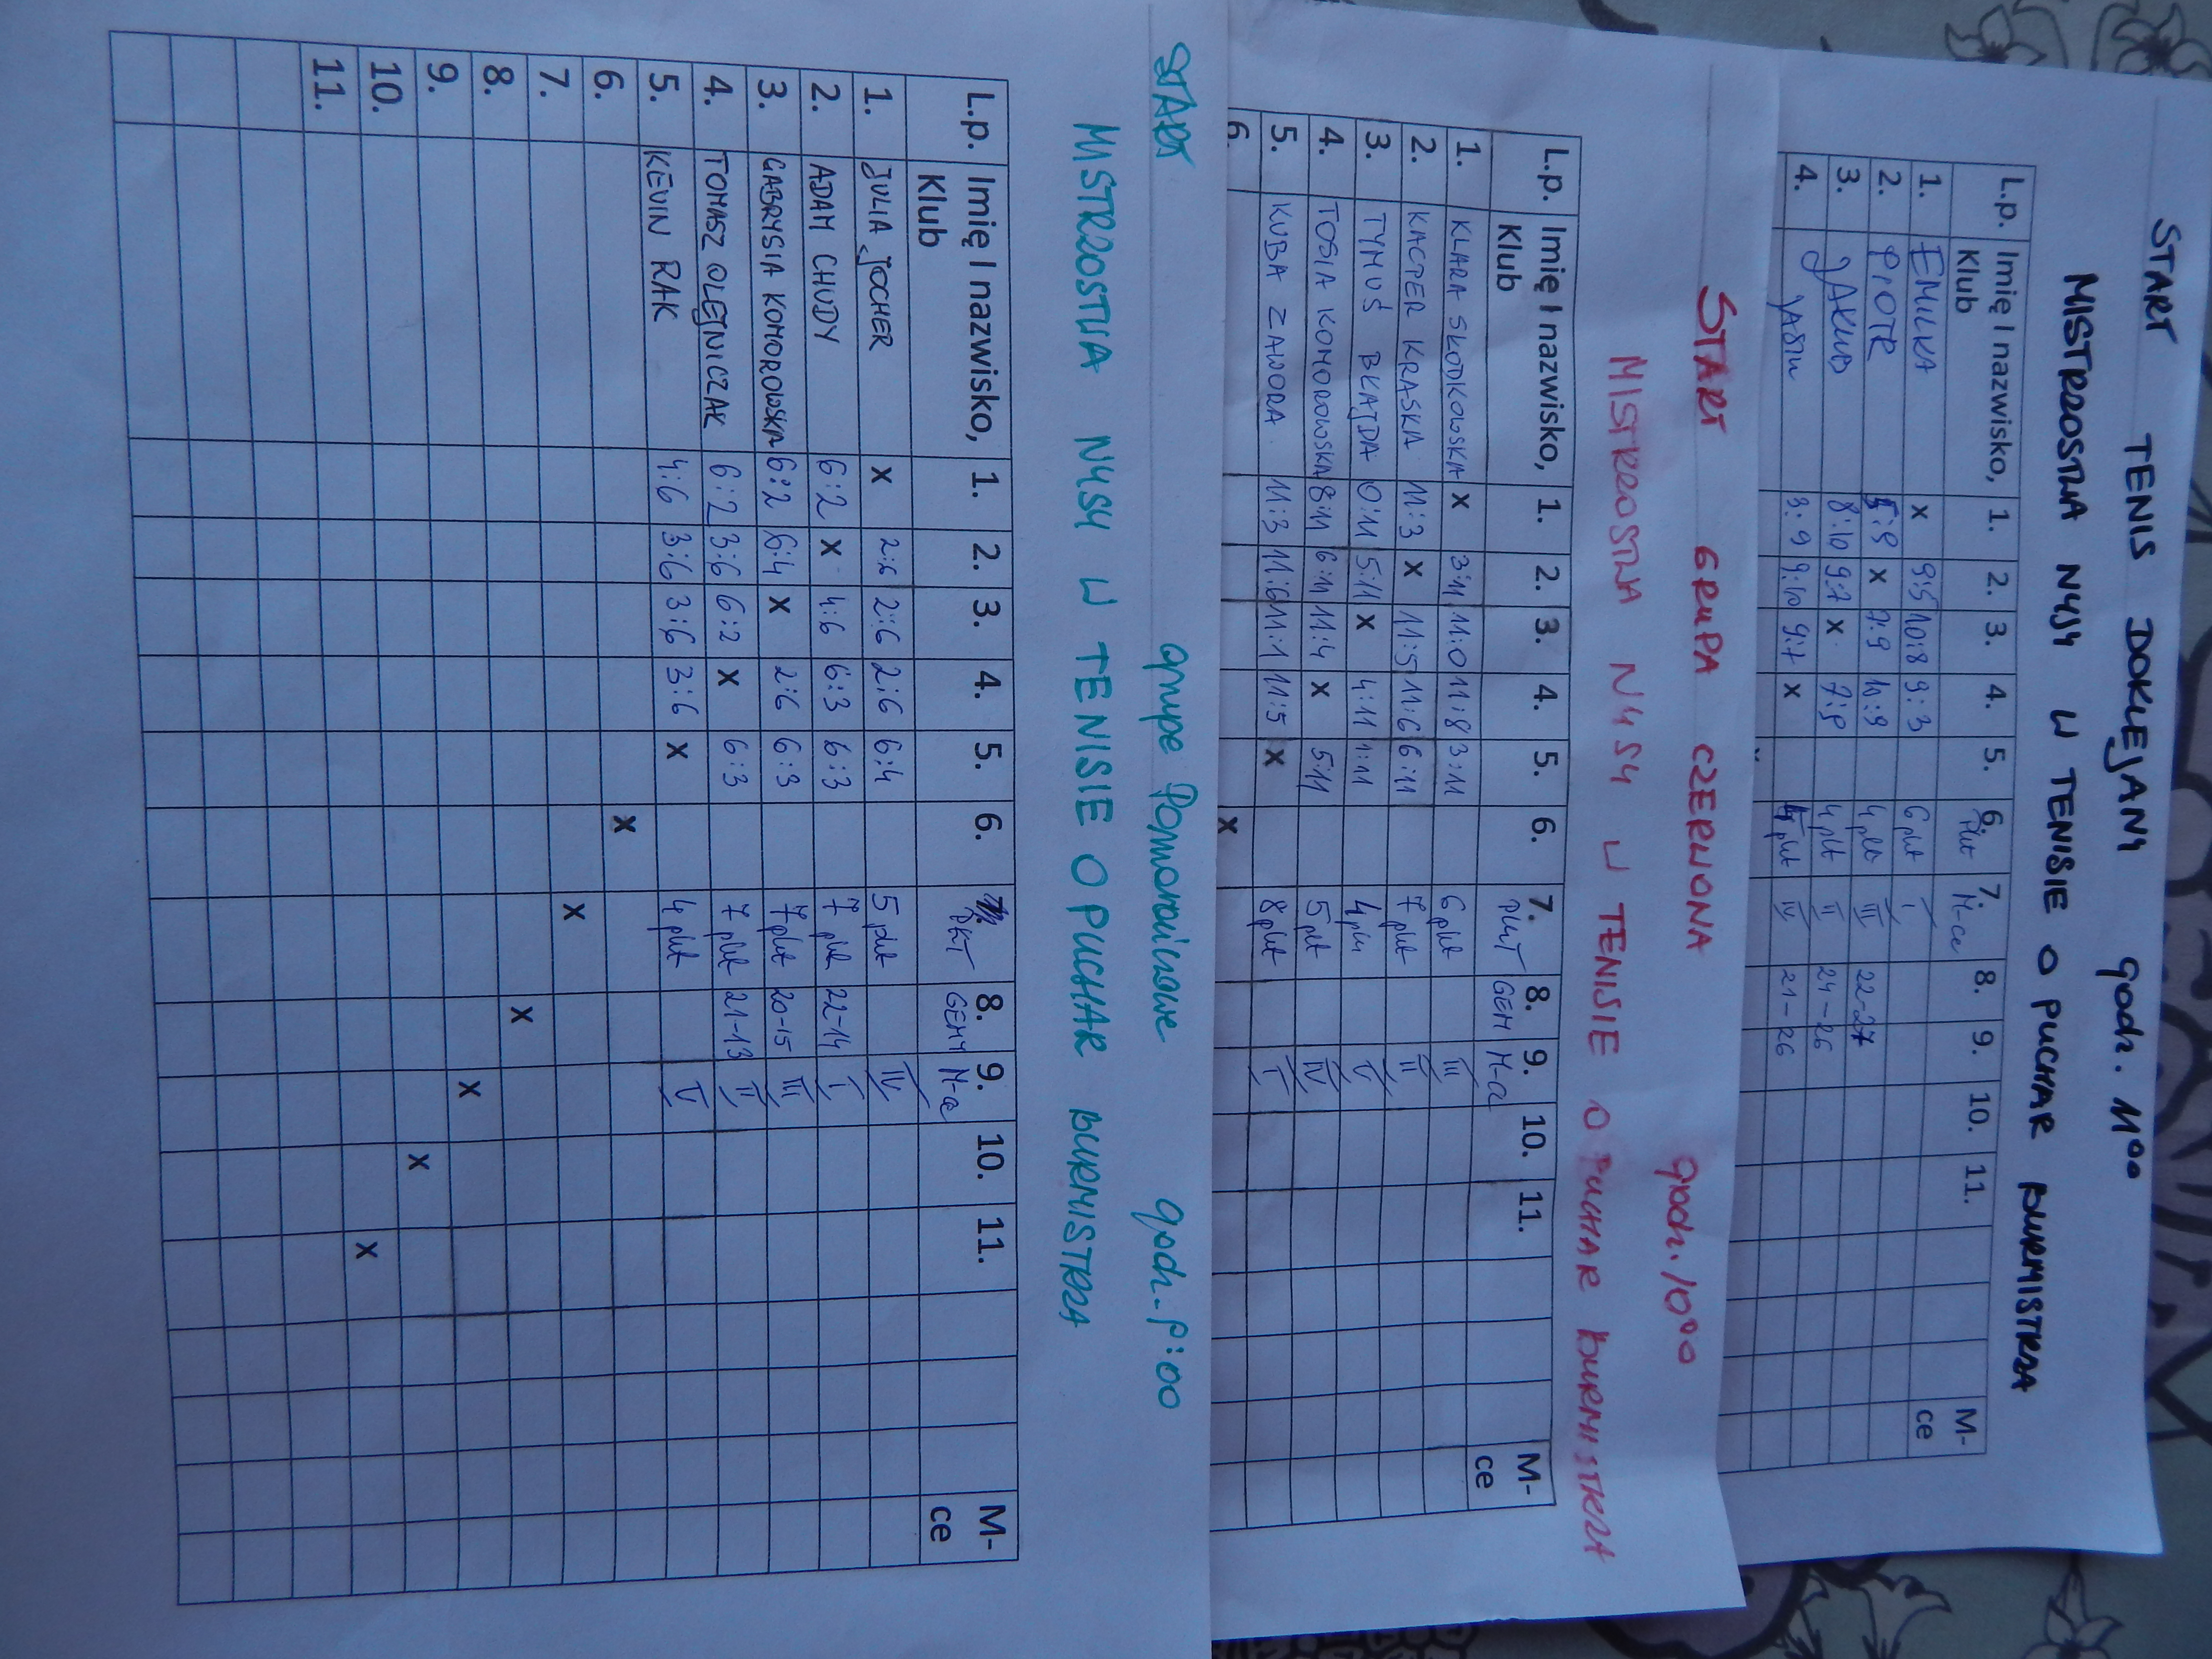 START TENIS DOKLEJANY godz. 11⁰⁰
MISTRZOSTWA NYSY W TENISIE O PUCHAR BURMISTRZA
L.p. Imię I nazwisko, Klub 1. 2. 3. 4. 5. 6. Pkt 7. M-ce 8. 9. 10. 11. M-ce
1. EMILKA x 9:5 10:8 9:3 6 pkt I
2. PIOTR 5:9 x 7:9 10:9 4 pkt III 22-27
3. JAKUB 8:10 9:7 x 7:9 4 pkt II 24-26
4. JAŚIU 3:9 9:10 9:7 x 4 pkt IV 21-26
START GRUPA CZERWONA godz. 10⁰⁰
MISTRZOSTWA NYSY W TENISIE O PUCHAR BURMISTRZA
L.p. Imię I nazwisko, Klub 1. 2. 3. 4. 5. 6. 7. PUNKT 8. GEM 9. M-ce 10. 11. M-ce
1. KLARA SKODKOWSKA x 3:11 11:0 11:8 3:11 6 pkt III
2. KACPER KRASKA 11:3 x 11:5 11:6 6:11 7 pkt II
3. TYMUŚ BŁAJDA 0:11 5:11 x 4:11 1:11 4 pkt V
4. TOSIA KOMOROWSKA 8:11 6:11 11:4 x 5:11 5 pkt IV
5. KUBA ZAWORA 11:3 11:6 11:1 11:5 x 8 pkt I
6. x
START grupa Pomarańczowe godz. 9:00
MISTRZOSTWA NYSY W TENISIE O PUCHAR BURMISTRZA
L.p. Imię I nazwisko, Klub 1. 2. 3. 4. 5. 6. 7. PKT 8. GEMY 9. M-ce 10. 11. M-ce
1. JULIA JOCHER x 2:6 2:6 2:6 6:4 5 pkt IV
2. ADAM CHUDY 6:2 x 4:6 6:3 6:3 7 pkt 22-14 I
3. GABRYSIA KOMOROWSKA 6:2 6:4 x 2:6 6:3 7 pkt 20-15 III
4. TOMASZ OLEJNICZAK 6:2 3:6 6:2 x 6:3 7 pkt 21-13 II
5. KEVIN RAK 4:6 3:6 3:6 3:6 x 4 pkt V
6. x
7. x
8. x
9. x
10. x
11. x